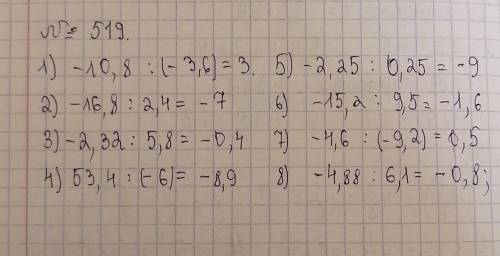 № 519.
1) -10,8 : (-3,6) = 3. 5) -2,25 : 0,25 = -9
2) -16,8 : 2,4 = -7 6) -15,2 : 9,5 = -1,6
3) -2,32 : 5,8 = -0,4 7) -4,6 : (-9,2) = 0,5
4) 53,4 : (-6) = -8,9 8) -4,88 : 6,1 = -0,8;